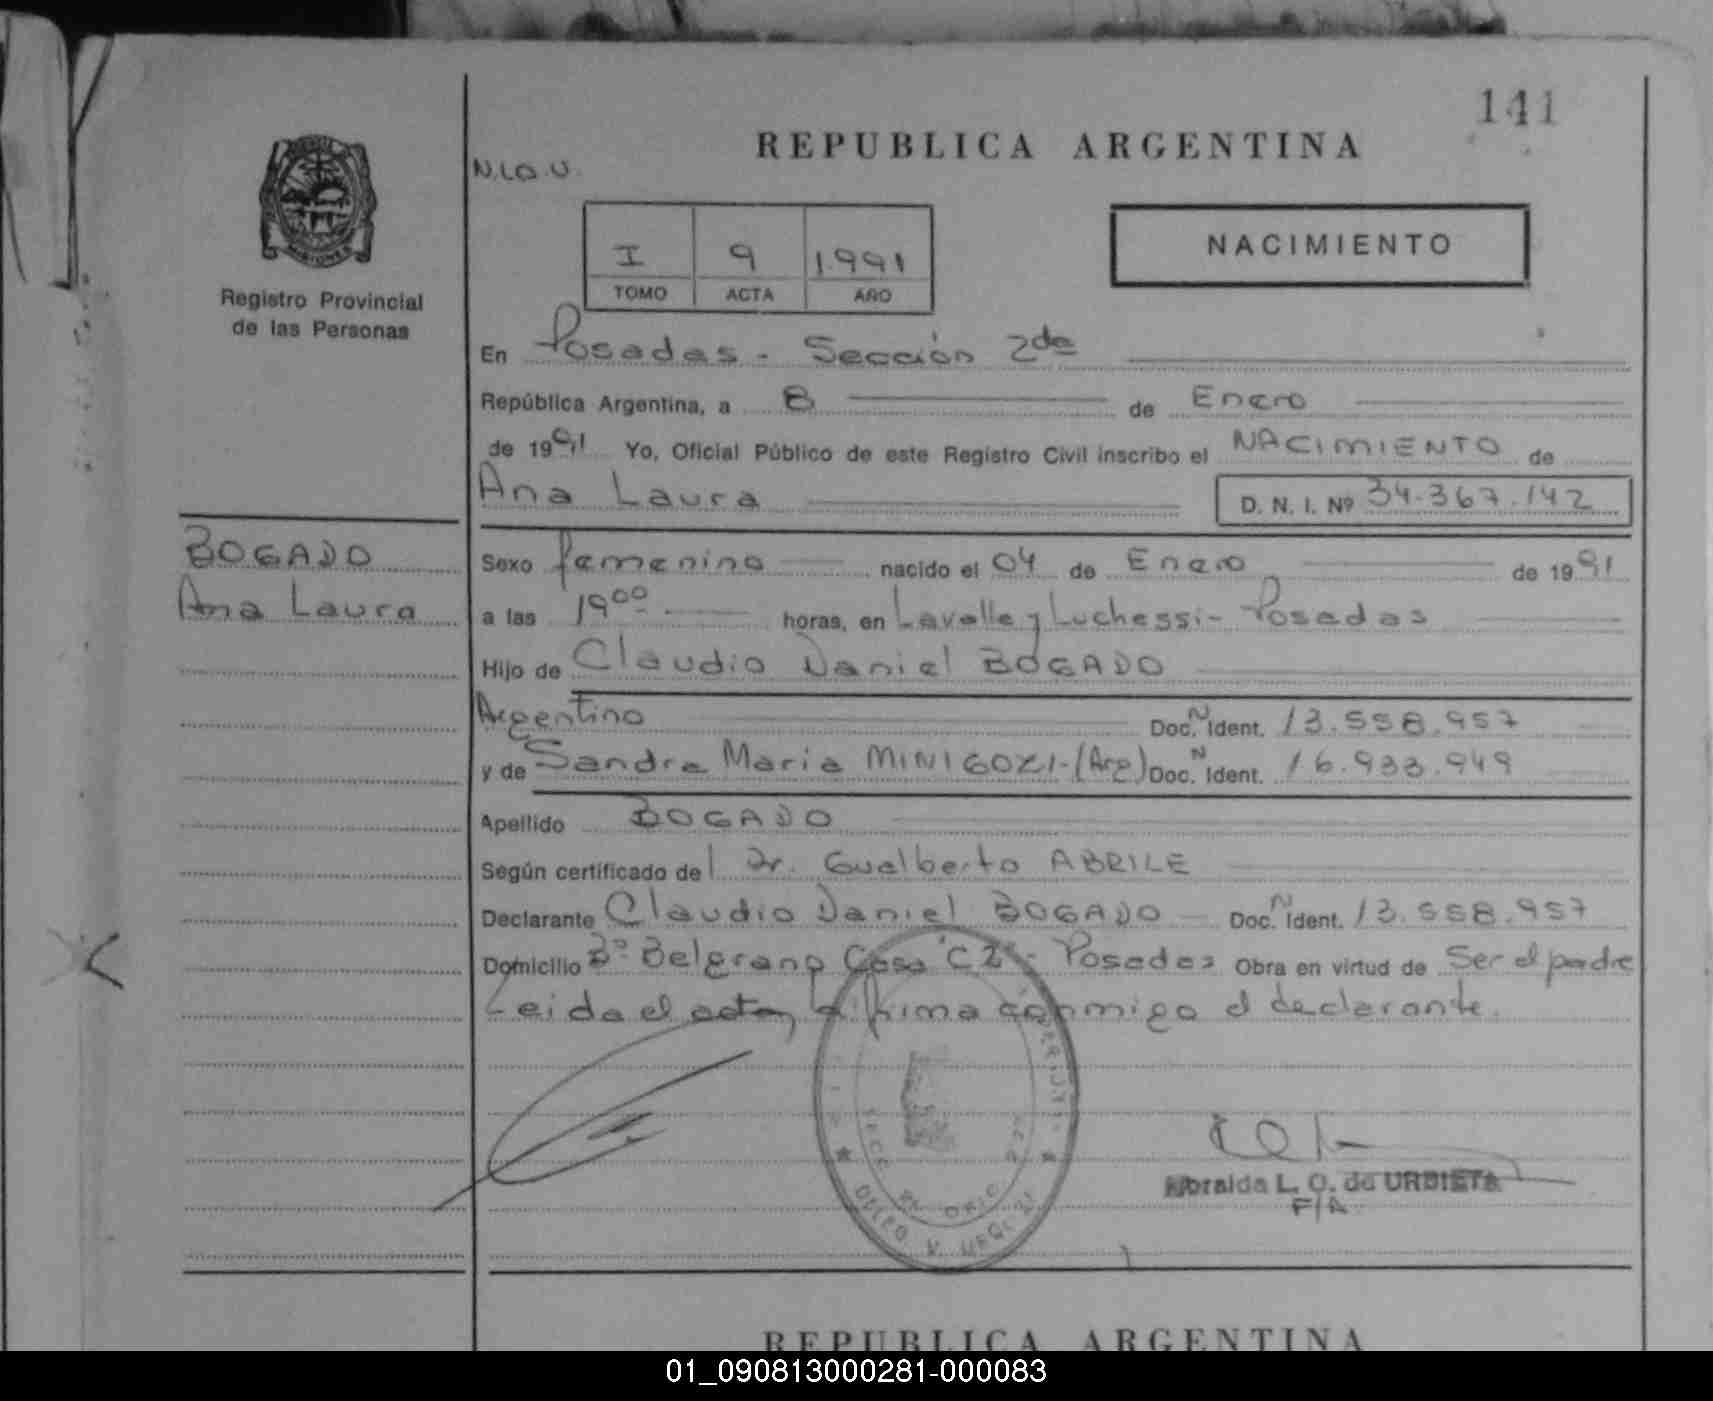 141
REPUBLICA ARGENTINA
N.LO.U.
I 9 1991
TOMO ACTA AÑO
NACIMIENTO
MISIONES
Registro Provincial
de las Personas
En Posadas - Sección 2da
República Argentina, a 8 de Enero
de 1991 Yo, Oficial Público de este Registro Civil inscribo el NACIMIENTO de
Ana Laura D. N. I. Nº 34.367.142
BOGADO
Ana Laura
Sexo femenino nacido el 04 de Enero de 1991
a las 19 00 horas, en Lavalle y Luchessi - Posadas
Hijo de Claudio Daniel BOGADO
Argentino Doc. N Ident. 13.558.957
y de Sandra Maria MINIGOZI - (Arg) Doc. N Ident. 16.933.949
Apellido BOGADO
Según certificado del Dr. Gualberto ABRILE
Declarante Claudio Daniel BOGADO - Doc. N Ident. 13.558.957
Domicilio Bº Belgrano Casa "C 2" - Posadas Obra en virtud de Ser el padre
Leida el acta, la firma conmigo el declarante.
L. O. de URBIETA
F/A
REPUBLICA ARGENTINA
01_090813000281-000083